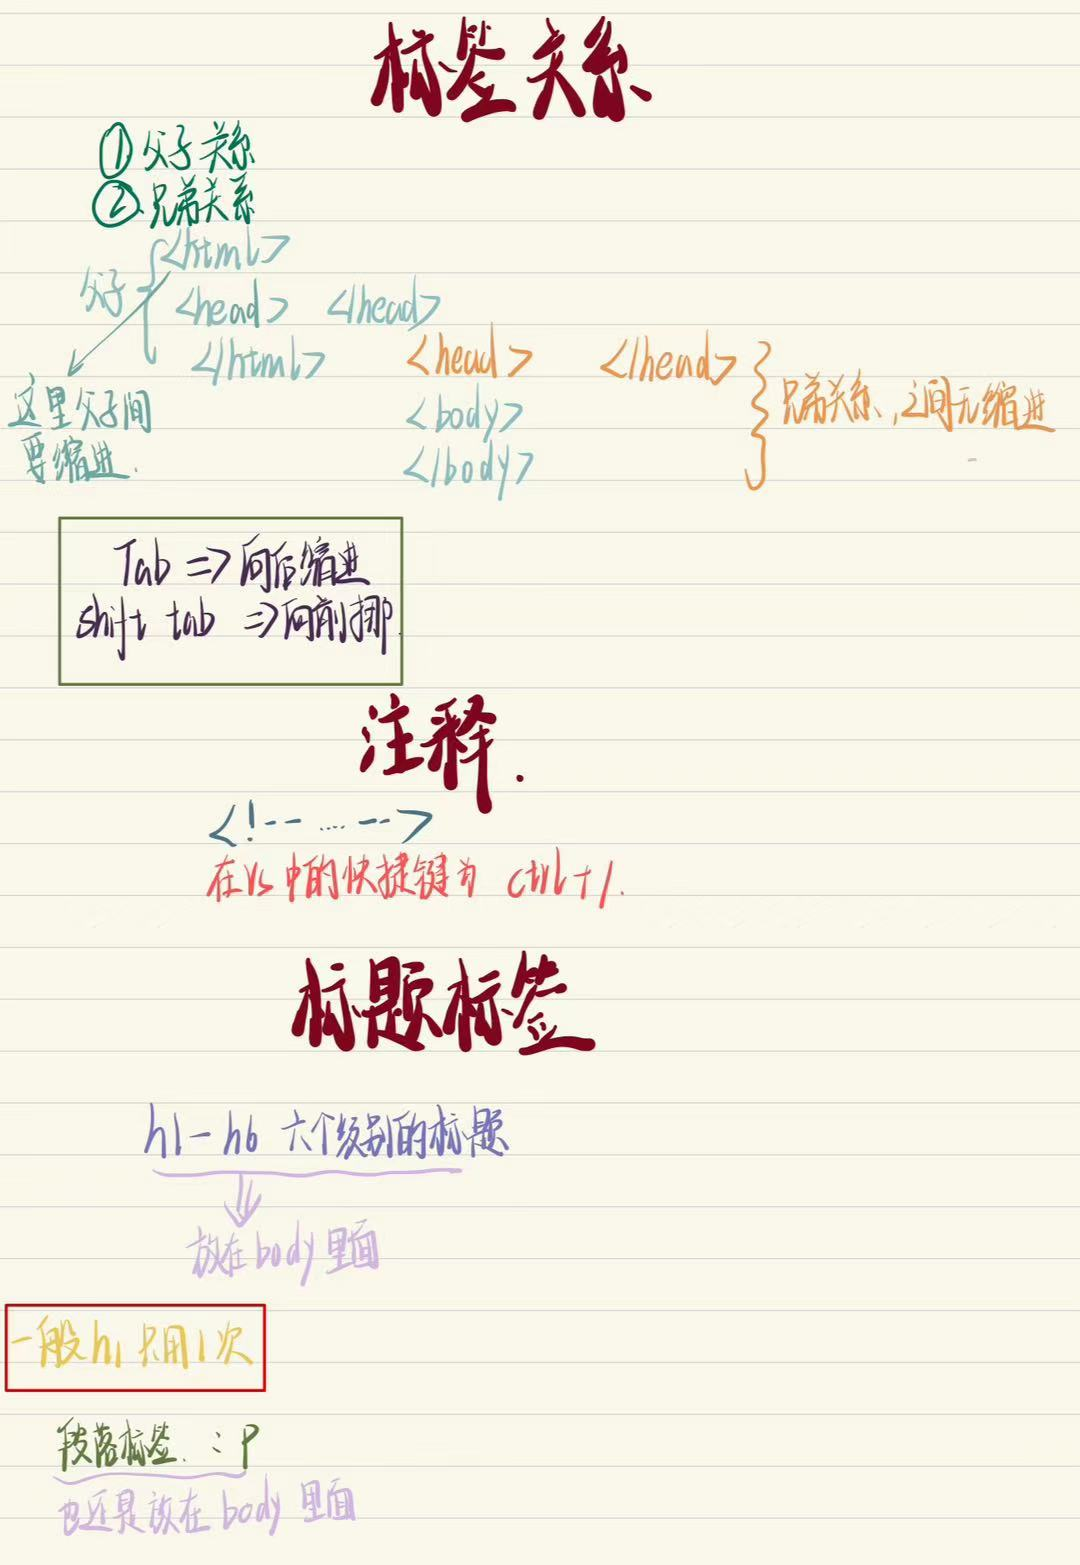 标签关系
①父子关系
②兄弟关系
父子
<html>
<head> </head>
</html>
这里父子间
要缩进.
<head> </head>
<body>
</body>
兄弟关系,之间无缩进
Tab => 向后缩进
shift tab => 向前挪.
注释.
<!-- .... -->
在Vs中的快捷键为 ctrl+/.
标题标签
h1-h6 六个级别的标题
放在body里面
一般h1只用1次
段落标签.:p
也还是放在body里面